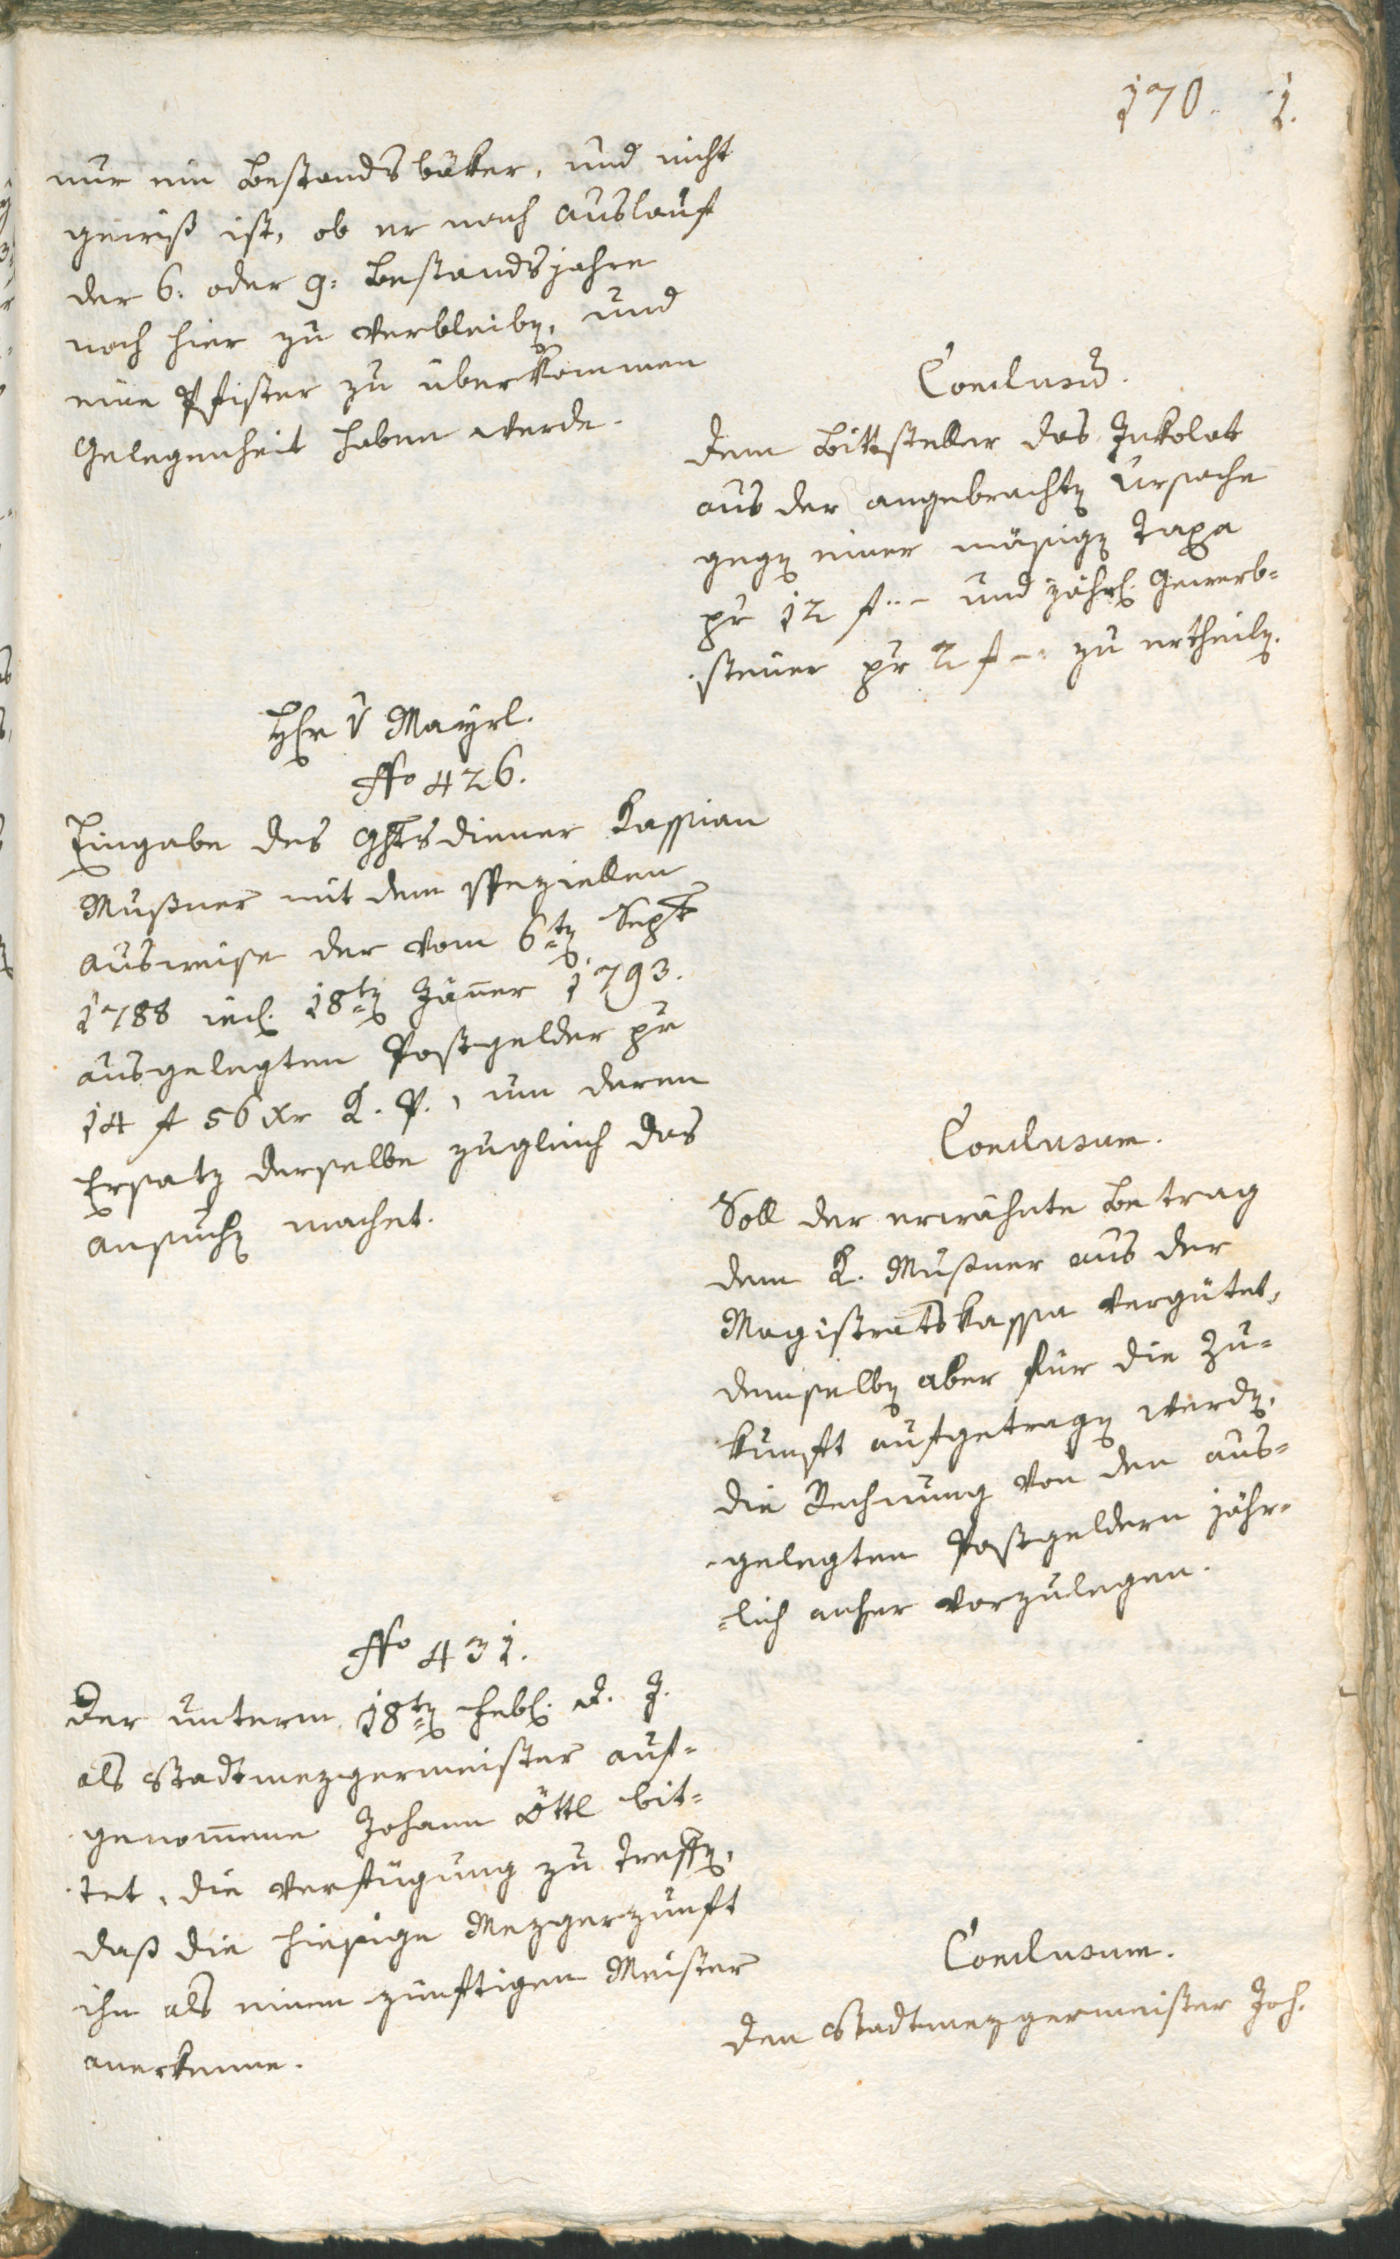 170. 1.
nur ein Bestandsbäker, und nicht
gewiß ist, ob er nach Auslauf
der 6. oder 9: Bestandsjahre
noch hier zu verbleiben, und
eine Pfister zu überkommen
Gelegenheit haben werde.
Conclusum.
Dem Bittsteller das Inkolat
aus der angebrachten Ursache
gegen einer mäsigen Taxa
pr 12 f. - und jährl. Gewerb=
steuer pr 2 f - zu ertheilen.
Hr v Mayrl.
No 426.
Eingabe des Ghtsdiener Kassian
Mußner mit dem speziellen
Ausweise der vom 6ten Sept
1788 incl. 18ten Jäner 1793.
ausgelegten Postgelder pr
14 f 56 xr K. P., um deren
Ersatz derselbe zugleich das
Ansuchen machet.
Conclusum.
Soll der erwähnte Betrag
dem K. Mußner aus der
Magistratskassa vergütet,
demselben aber für die Zu=
kunft aufgetragen werden,
die Rechnung von den aus=
gelegten Postgeldern jähr=
=lich anher vorzulegen.
No 431.
Der unterm 18ten Febl. d. J.
als Stadtmezgermeister auf=
genomene Johann Öttl bit=
tet, die Verfügung zu treffen,
daß die hiesige Mezgerzunft
ihn als einen zünftigen Meister
anerkenne.
Conclusum.
Den Stadtmezgermeister Joh.